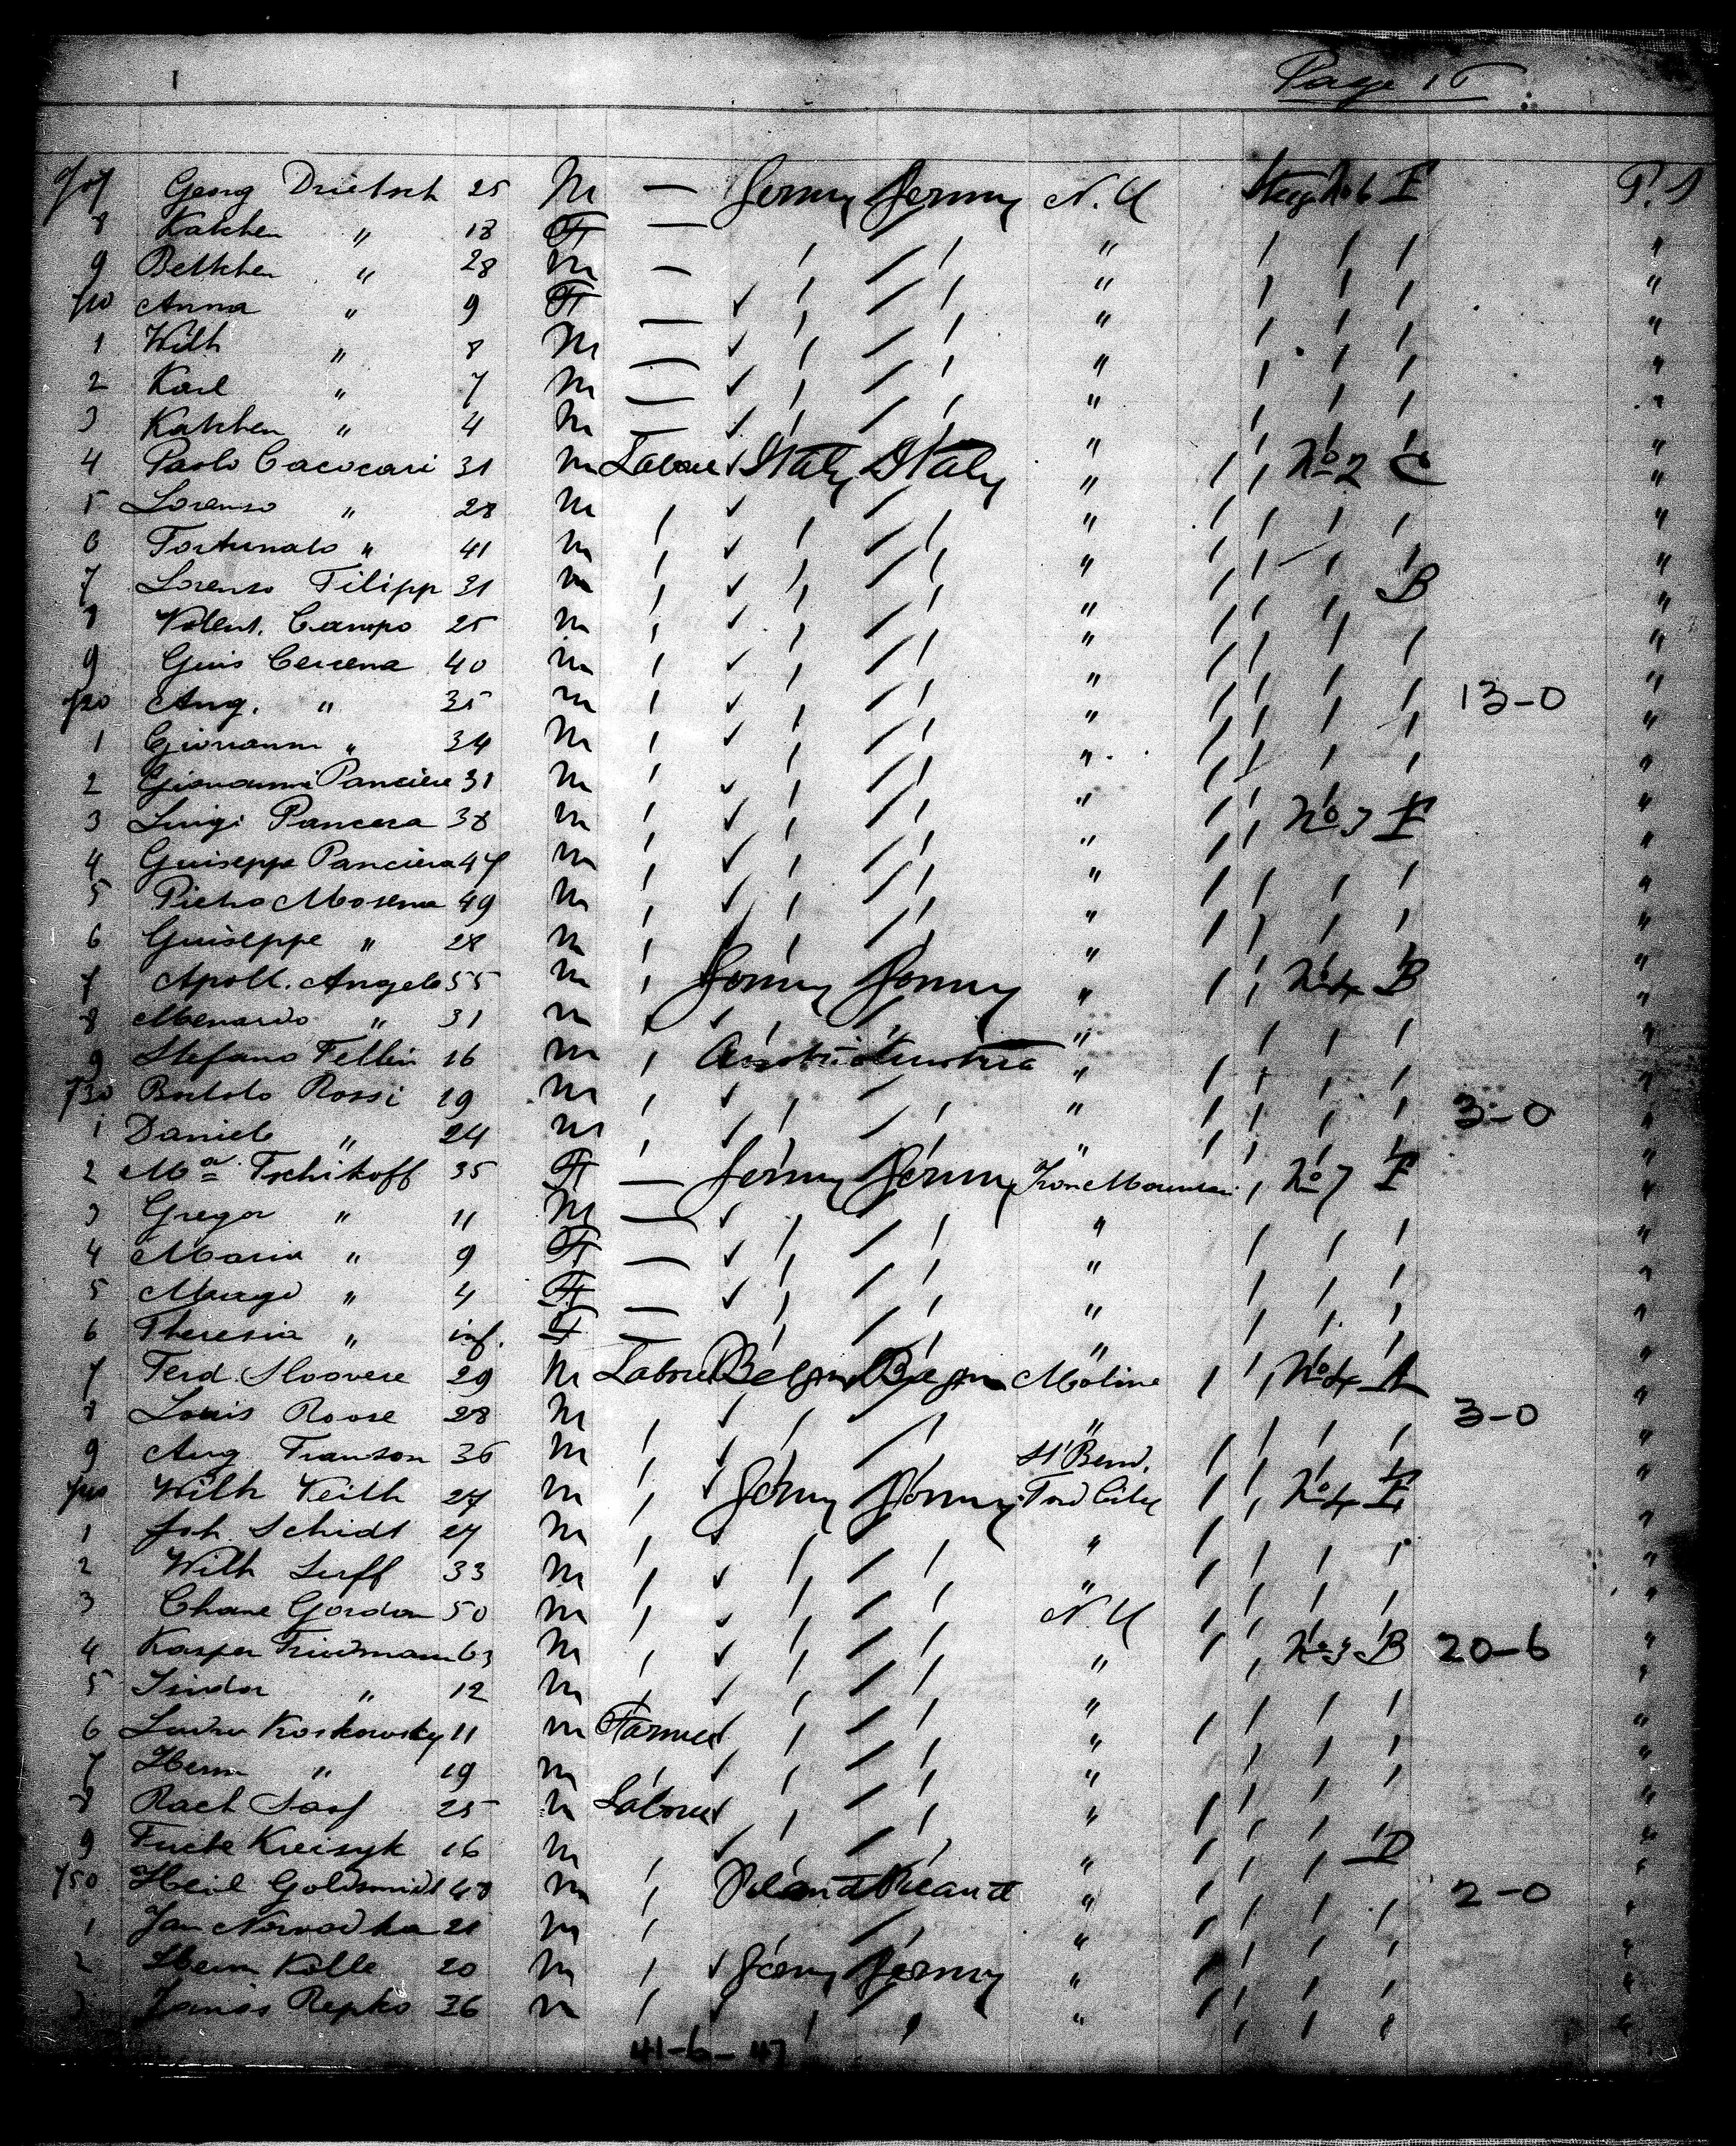 Page 16
707 Georg Drietsch 25 M — Germy Germy N.Y Steeg No 6 F P. S
8 Katchen " 18 F — " "
9 Bettchen " 28 M — " "
710 Anna " 9 F — " "
1 Wilh " 8 M — " "
2 Karl " 7 M — " "
3 Katchen " 4 M — " "
4 Paolo Cacocari 31 M Laborer Italy Italy " No 2 C "
5 Lorenso " 28 M " "
6 Fortunato " 41 M " "
7 Lorenso Filipp 31 M " B "
8 Valent. Campo 25 M " "
9 Guis Cercena 40 M " "
720 Ang. " 35 M " 13-0 "
1 Giovanni " 34 M " "
2 Giovanni Panciera 31 M " "
3 Luigi Pancera 38 M " No 3 F "
4 Guiseppe Panciera 47 M " "
5 Pietro Mosena 49 M " "
6 Guiseppe " 28 M " "
7 Apoll. Angelo 55 M Germy Germy " No 4 B "
8 Menardo " 31 M " "
9 Stefano Fellin 16 M Austria Austria " "
730 Bortolo Rossi 19 M " 3-0 "
1 Daniele " 24 M " "
2 Ma Tschikoff 35 F — Germy Germy Iron Mountain No 7 F "
3 Gregor " 11 M — " "
4 Maria " 9 F — " "
5 Margo " 4 F — " "
6 Theresia " inf. F — " "
7 Ferd. Sloovere 29 M Laborer Belgm Belgm Moline No 4 A "
8 Louis Roose 28 M " 3-0 "
9 Aug Franson 36 M St Bend. "
740 Wilh Keith 27 M Germy Germy Ford City No 4 F "
1 Joh. Schidt 27 M " "
2 Wilh Luff 33 M " "
3 Chane Gordon 50 M N.Y "
4 Kasper Friedmann 63 M " No 3 B 20-6 "
5 Isidor " 12 M " "
6 Ludw Koskowsky 11 M Farmer " "
7 Herm " 19 M " "
8 Rach Sasf 25 M Laborer " "
9 Kreisyk 16 M " D "
750 Goldsmidt 48 M " 2-0 "
1 Jan 21 M " "
2 Herm Kalle 20 M Germy Germy " "
3 Janos Repko 36 M " "
41-6-47